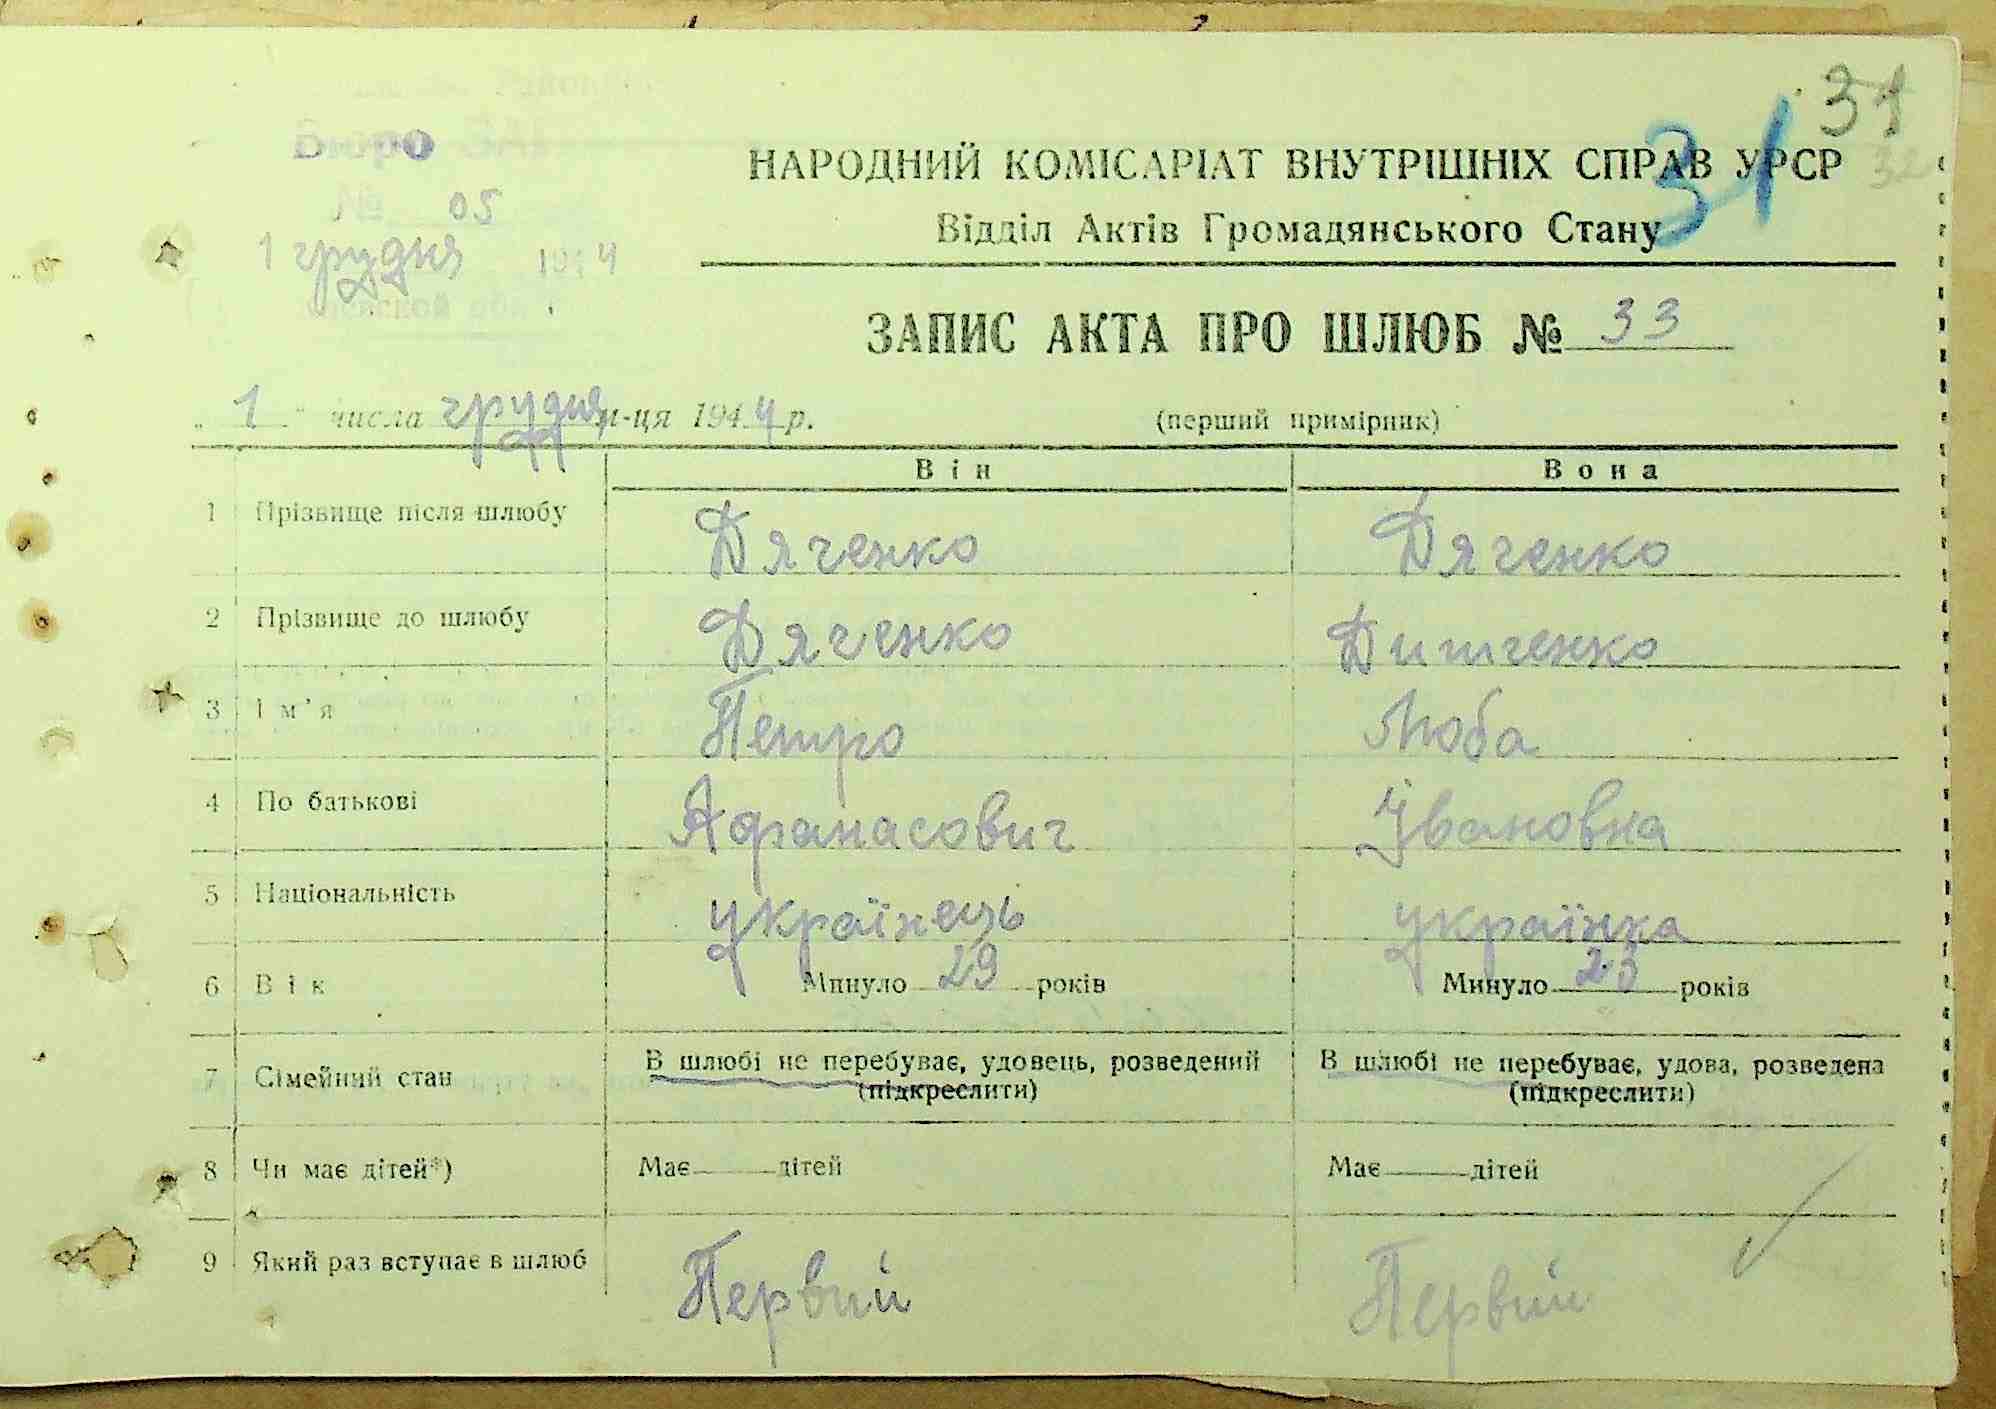 31
32
31
Бюро
№ 05
1 грудня 1944
НАРОДНИЙ КОМІСАРІАТ ВНУТРІШНІХ СПРАВ УРСР
Відділ Актів Громадянського Стану
ЗАПИС АКТА ПРО ШЛЮБ № 33
„ 1 " числа грудня м-ця 1944 р. (перший примірник)
Він Вона
1 Прізвище після шлюбу Дяченко Дяченко
2 Прізвище до шлюбу Дяченко Дитченко
3 Ім'я Петро Люба
4 По батькові Афанасович Івановна
5 Національність українець українка
6 Вік Минуло 29 років Минуло 23 років
7 Сімейний стан В шлюбі не перебуває, удовець, розведений В шлюбі не перебуває, удова, розведена
(підкреслити) (підкреслити)
8 Чи має дітей*) Має дітей Має дітей
9 Який раз вступає в шлюб Первий Первий